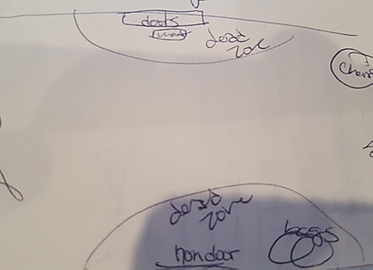 doors
dead
zone
chairs
dead
zone
bags
non door